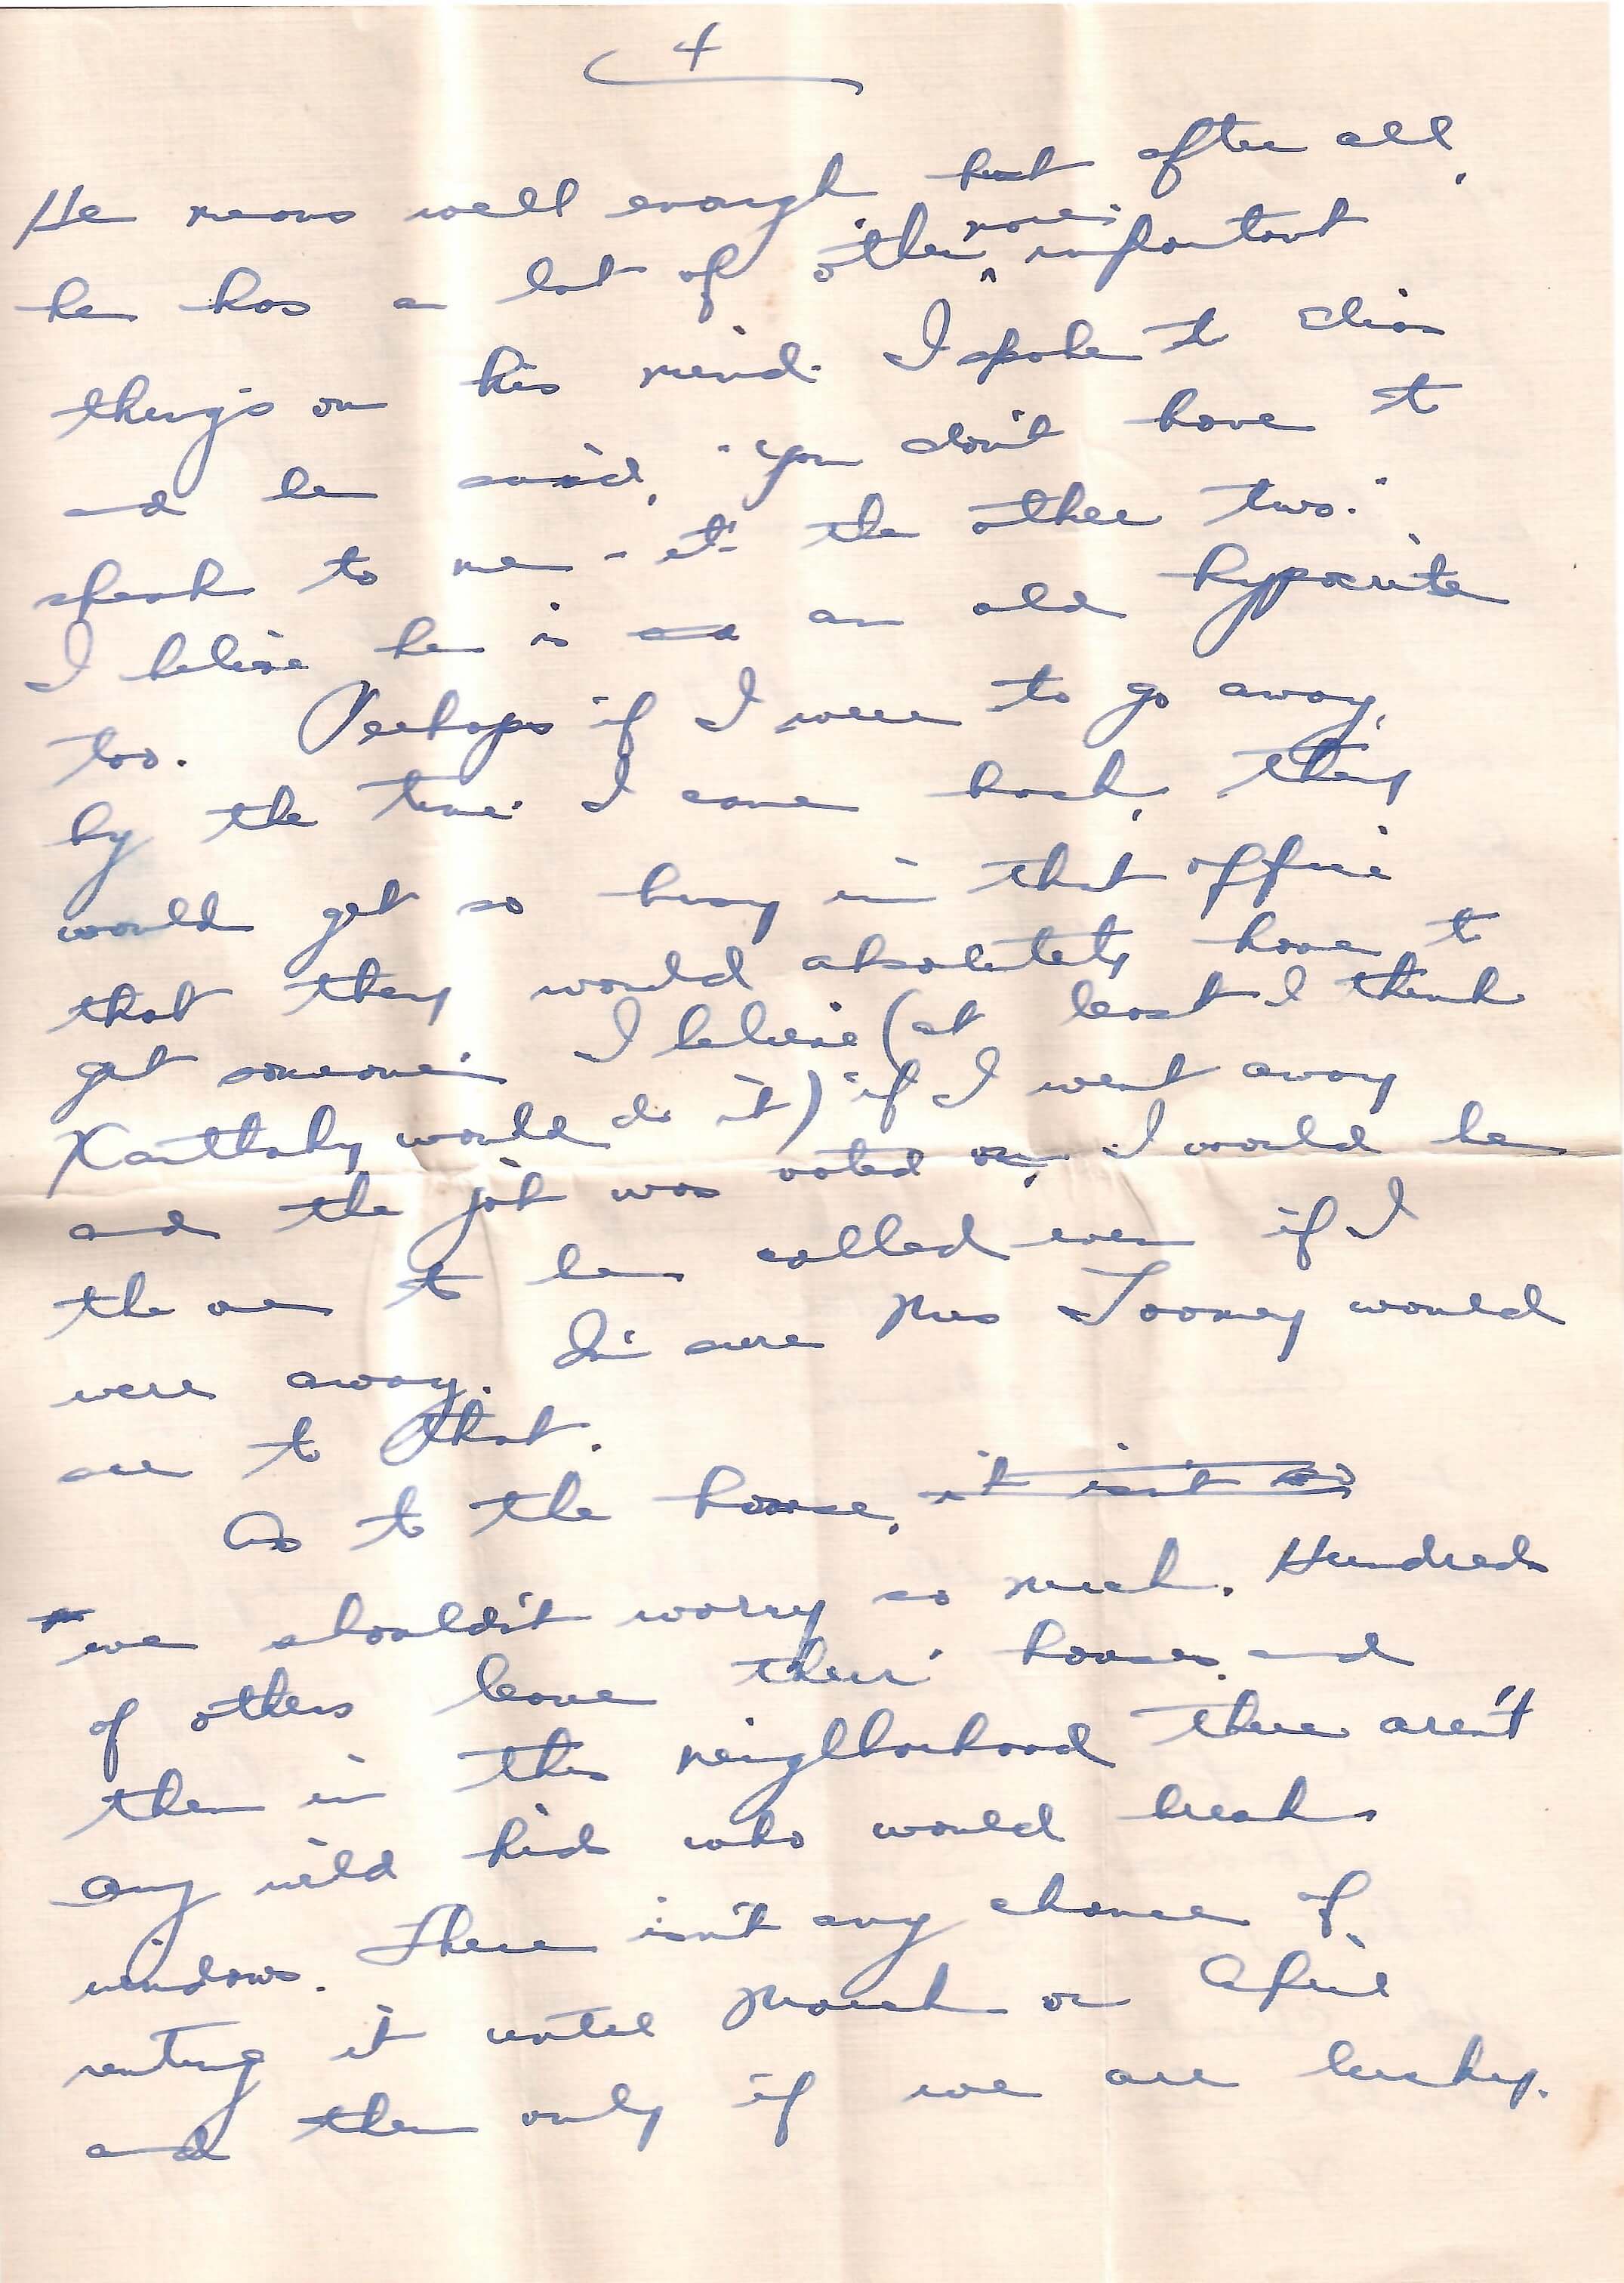 4
He means well enough but after all,
he has a lot of other more important
things on his mind. I spoke to
and he said, "you don't have to
speak to me - it's the other two."
I believe he is an old hypocrite
too. Perhaps if I were to go away,
by the time I came back, they
would get so busy in that office
that they would absolutely have to
get someone. I believe (at least I think
would do it) if I went away
and the job was voted on, I would be
the one to be called even if I
were away. I'm sure Mrs Toomey would
see to that.
As to the house, it isn't so
we shouldn't worry so much. Hundreds
of others leave their houses and
then in this neighborhood there aren't
any wild kids who would break
windows. There isn't any chance of
renting it until March or April
and then only if we are lucky.